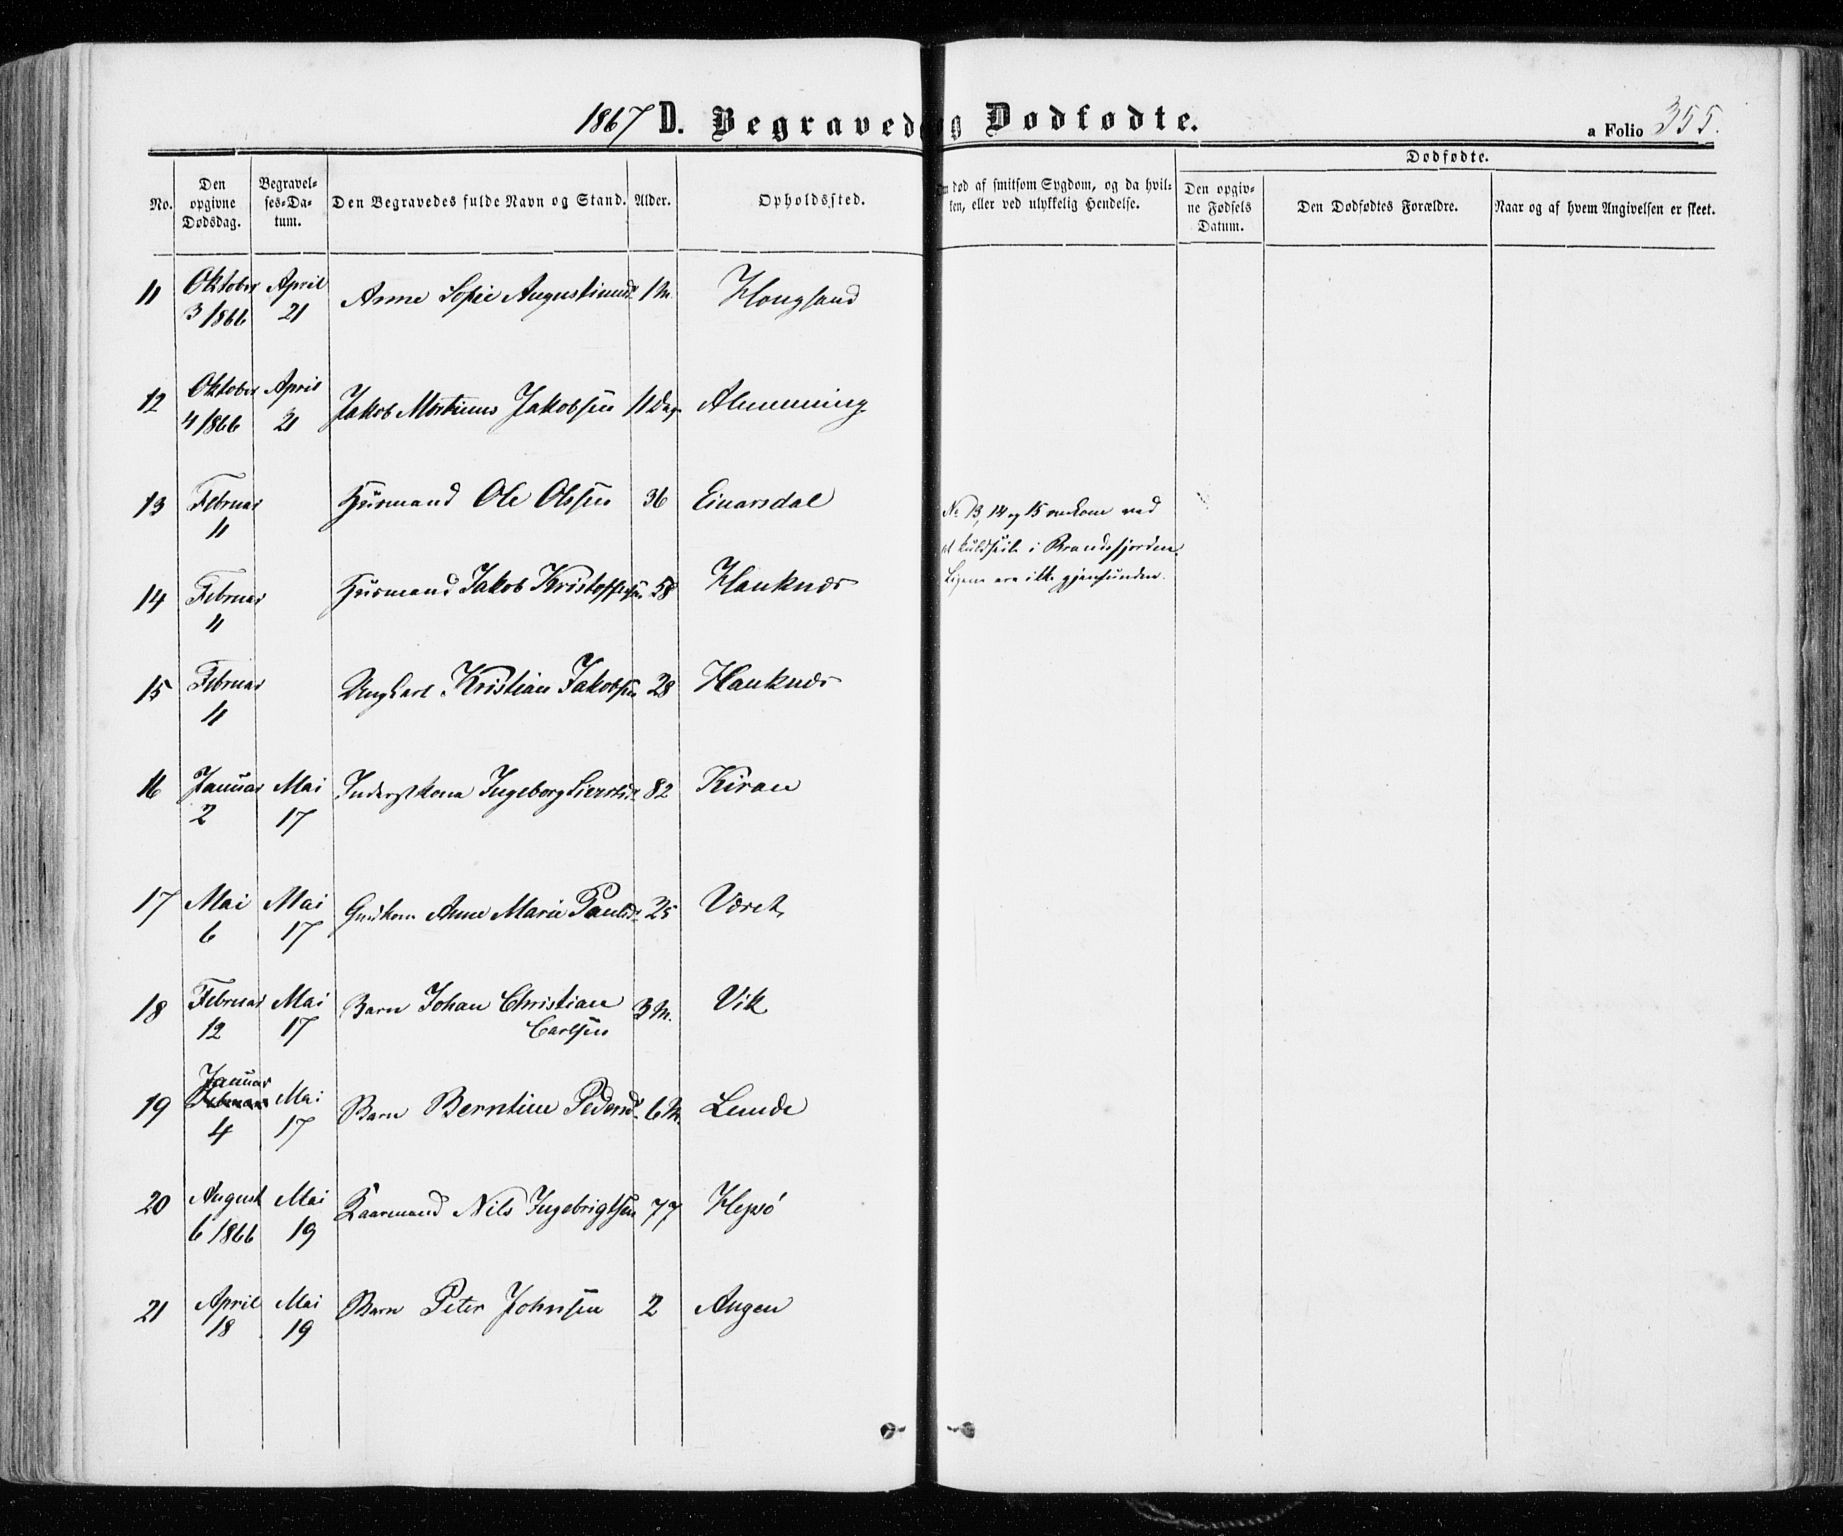 1867 D. Begravede og Dødfødte.
a Folio 355.
No.
Den opgivne Dødsdag.
Begravel-
ses-Da-
tum.
Den Begravedes fulde Navn og Stand.
Alder.
Opholdssted.
død af smitsom Sygdom, og da hvil-
ken, eller ved ulykkelig Hendelse.
Dødfødte.
Den opgiv-
ne Fødsels
Datum.
Den Dødfødtes Forældre.
Naar og af hvem Angivelsen er skeet.
11 Oktober 3 1866 April 21 Anne Sofie Augustinusd. 1 M. Hongsand
12 Oktober 4 1866 April 21 Jakob Martinus Jakobsen 11 Dag Almenning
13 Februar 11 Husmand Ole Olssen 36 Einarsdal
No 13, 14 og 15 omkom ved
et Kuldseil i Brandsfjorden.
Ligene ere ikke gjenfundne.
14 Februar 11 Husmand Jakob Kristoffersen 58 Hauknæs
15 Februar 11 Ungkarl Kristian Jakobsen 28 Hauknæs
16 Januar 2 Mai 17 Inderstkone Ingeborg 82 Kiran
17 Mai 6 Mai 17 Anne Marie Paulsd. 25 Været
18 Februar 12 Mai 17 Barn Johan Christian
Carlsen 3 M. Vik
19 Januar Februar 4 Mai 17 Barn Berntine Pedersd. 6 M. Lunde
20 August 6 1866 Mai 19 Kaarmand Nils Ingebrigtsen 77 Hepsø
21 April 18 Mai 19 Barn Peter Johnsen 2 Angen